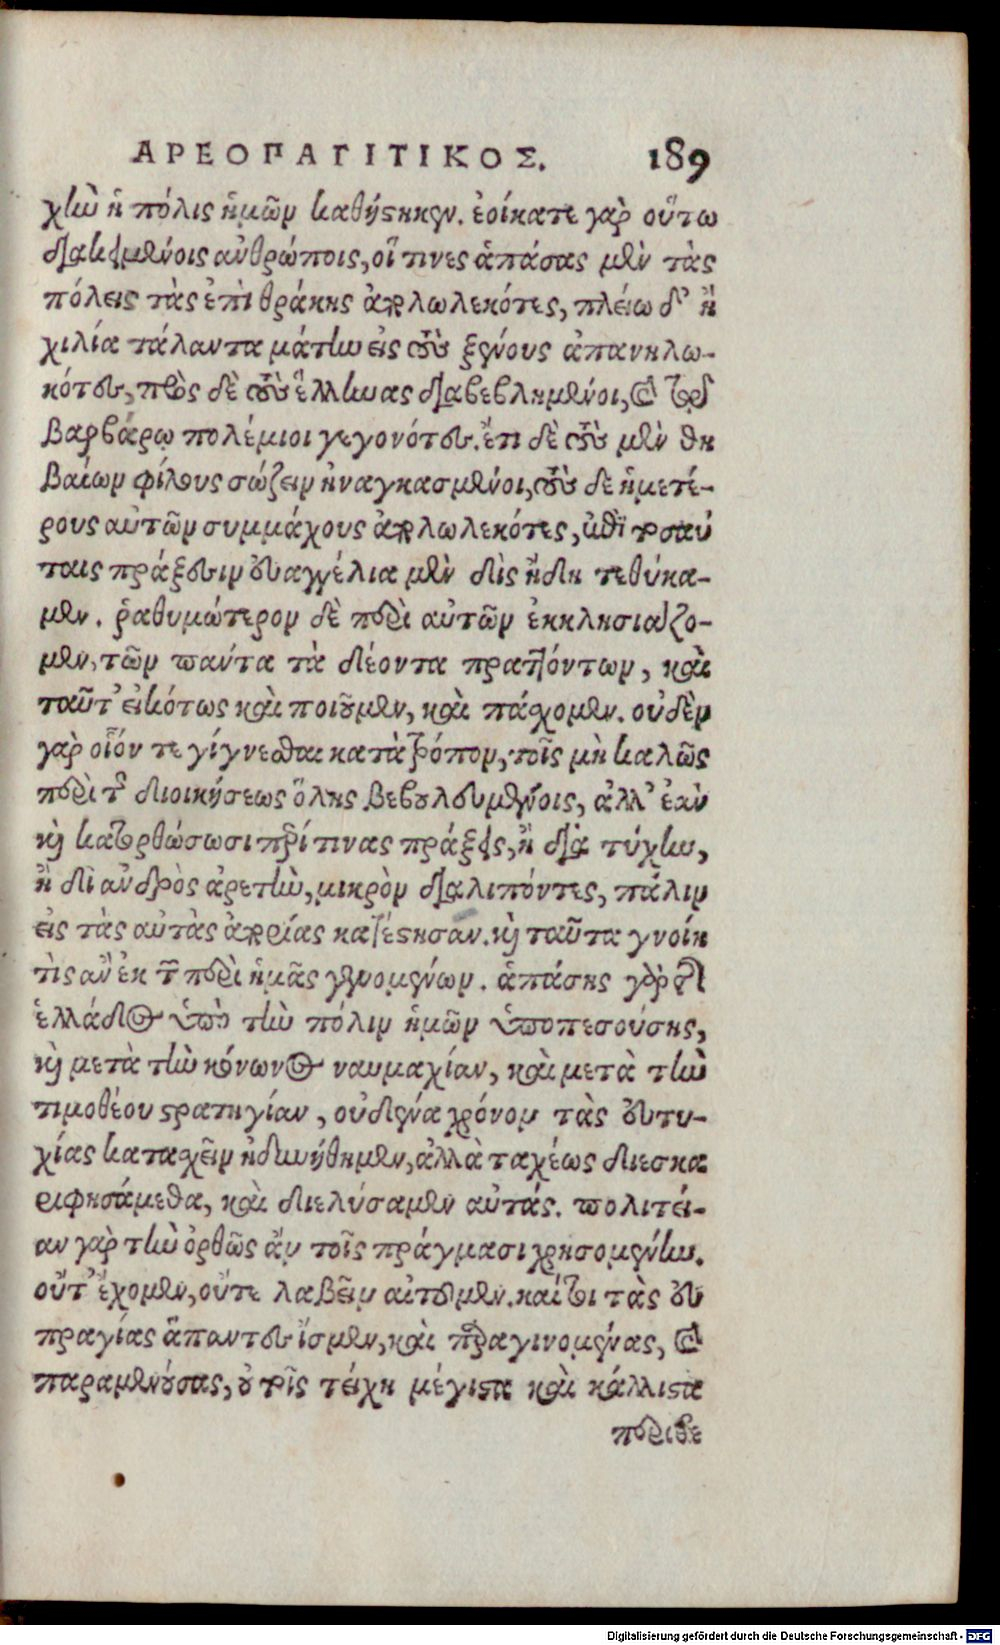 ΑΡΕΟΠΑΓΙΤΙΚΟΣ. 189
χὴν ἡ πόλις ἡμῶν καθήστηκεν. ἐοίκατε γὰρ οὕτω
διακειμένοις ἀνθρώποις, οἵ τινες ἁπάσας μὲν τὰς
πόλεις τὰς ἐπὶ θράκης ἀπολωλεκότες, πλείω δ' ἢ
χίλια τάλαντα μάτην εἰς τοὺς ξένους ἀπανηλω-
κότες, πρὸς δὲ τοὺς ἕλληνας διαβεβλημένοι, καὶ τῷ
βαρβάρῳ πολέμιοι γεγονότες. ἔτι δὲ τοὺς μὲν θη
βαίων φίλους σώζειν ἠναγκασμένοι, τοὺς δὲ ἡμετέ-
ρους αὐτῶν συμμάχους ἀπολωλεκότες, ἐπὶ τοσαύ
ταις πράξεσιν εὐαγγέλια μὲν δὶς ἤδη τεθύκα-
μεν. ῥαθυμώτερον δὲ περὶ αὐτῶν ἐκκλησιάζο-
μεν, τῶν πάντα τὰ δέοντα πραττόντων, καὶ
ταῦτ' εἰκότως καὶ ποιοῦμεν, καὶ πάσχομεν. οὐδὲν
γὰρ οἷόν τε γίγνεσθαι κατὰ τρόπον, τοῖς μὴ καλῶς
περὶ τῆς διοικήσεως ὅλης βεβουλευμένοις, ἀλλ' ἐὰν
καὶ κατορθώσωσι περί τινας πράξεις, ἢ διὰ τύχην,
ἢ δι ἀνδρὸς ἀρετὴν, μικρὸν διαλιπόντες, πάλιν
εἰς τὰς αὐτὰς ἀπορίας κατέστησαν. καὶ ταῦτα γνοίη
τὶς ἂν ἐκ τῶν περὶ ἡμᾶς γενομένων. ἁπάσης γὰρ τῆς
ἑλλάδος ὑπὸ τὴν πόλιν ἡμῶν ὑποπεσούσης,
καὶ μετὰ τὴν κόνωνος ναυμαχίαν, καὶ μετὰ τὴν
τιμοθέου στρατηγίαν, οὐδένα χρόνον τὰς εὐτυ-
χίας κατασχεῖν ἠδυνήθημεν, ἀλλὰ ταχέως διεσκα
ριφησάμεθα, καὶ διελύσαμεν αὐτάς. πολιτεί-
αν γὰρ τὴν ὀρθῶς ἂν τοῖς πράγμασι χρησομένην.
οὔτ' ἔχομεν, οὔτε λαβεῖν αἰτοῦμεν. καίτοι τὰς εὐ
πραγίας ἅπαντες ἴσμεν, καὶ παραγινομένας, καὶ
παραμενούσας, οὐ τοῖς τείχη μέγιστα καὶ κάλλιστα
περιβε
Digitalisierung gefördert durch die Deutsche Forschungsgemeinschaft - DFG